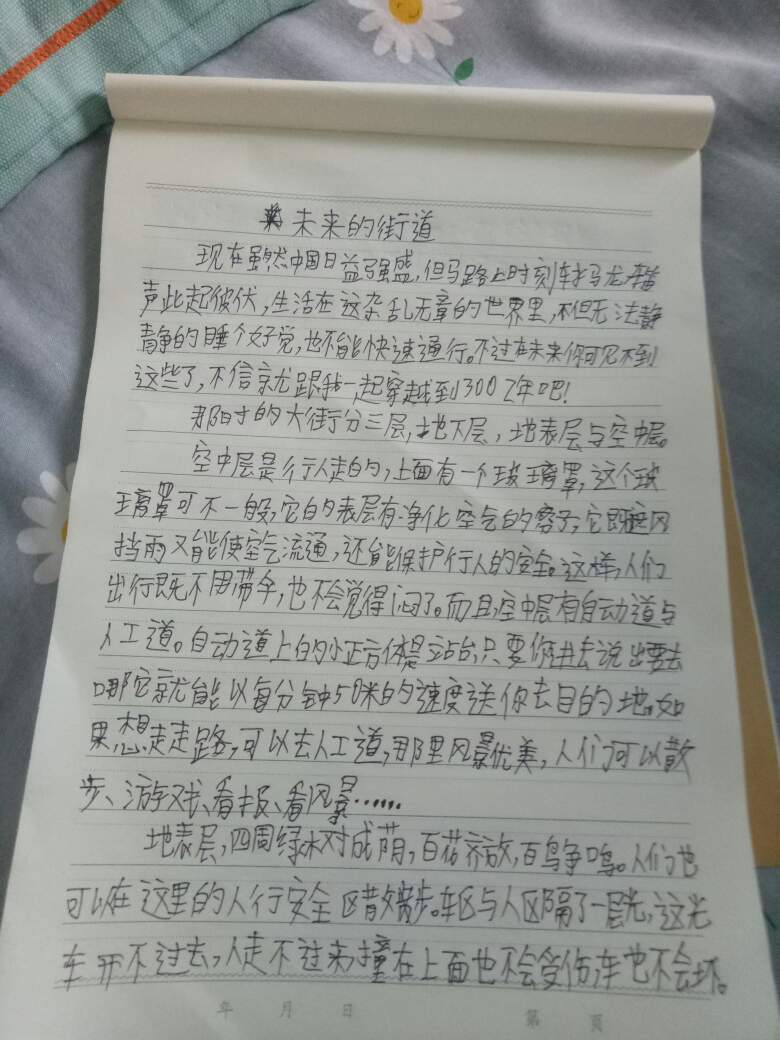 未来的街道
现在虽然中国日益强盛,但马路上时刻车水马龙,喇叭
声此起彼伏,生活在这杂乱无章的世界里,不但无法静
静的睡个好觉,也不能快速通行。不过在未来你可见不到
这些了,不信就跟我一起穿越到3002年吧!
那时的大街分三层,地下层,地表层与空中层。
空中层是行人走的,上面有一个玻璃罩,这个玻
璃罩可不一般,它的表层有净化空气的,它既避风
挡雨又能使空气流通,还能保护行人的安全。这样,人们
出行既不用带伞,也不会觉得闷了。而且,空中层有自动道与
人工道。自动道上的小正方体是站台,只要你进去说出要去
哪它就能以每分钟50米的速度送你去目的地。如
果想走走路,可以去人工道,那里风景优美,人们可以散
步、游戏、看报、看风景……
地表层,四周绿树成荫,百花齐放,百鸟争鸣。人们也
可以在这里的人行安全区散散步。车区与人区隔了一层光,这光
车开不过去,人走不过来,撞在上面也不会受伤,车也不会坏。
年 月 日 第 页